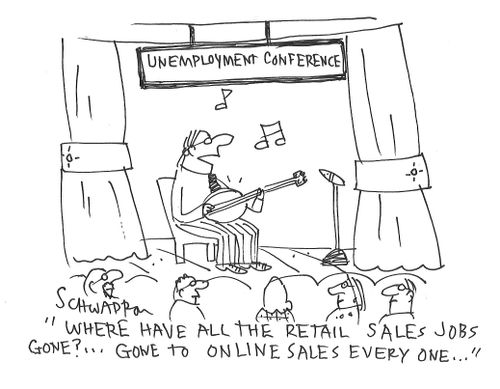 UNEMPLOYMENT CONFERENCE
SCHWADRON
"WHERE HAVE ALL THE RETAIL SALES JOBS
GONE?... GONE TO ONLINE SALES EVERY ONE..."